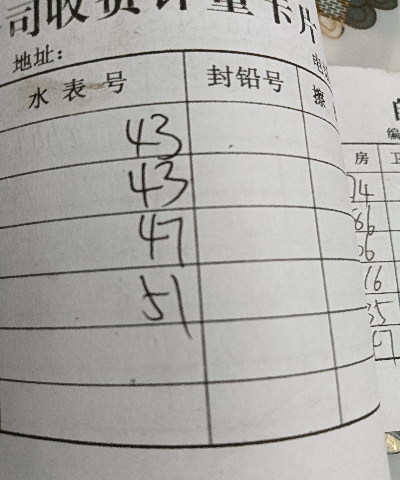 司收费计量卡片
地址：
水表号 封铅号
43
43
47
51
房
74
86
16
35